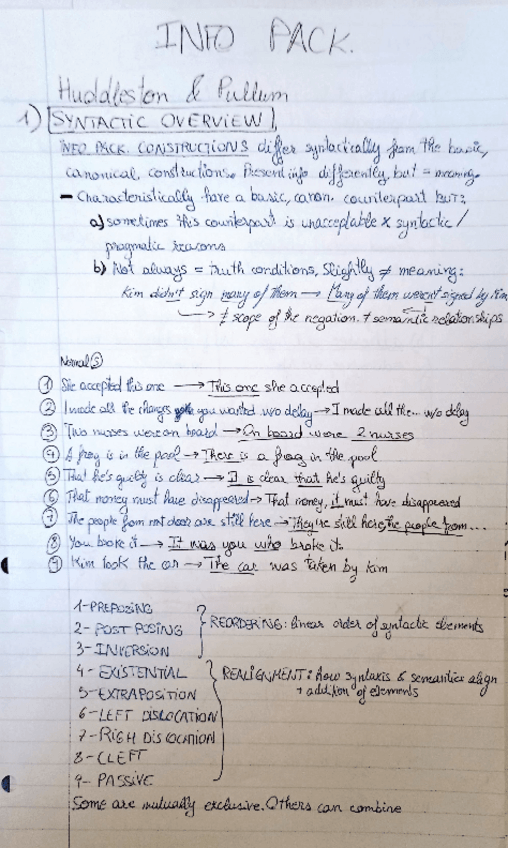 INFO PACK.
Huddleston & Pullum
1) SYNTACTIC OVERVIEW
INFO PACK. CONSTRUCTIONS differ syntactically from the basic,
canonical, constructions. Present info differently, but = meaning.
- Characteristically have a basic, canon. counterpart BUT:
a) sometimes this counterpart is unacceptable x syntactic /
pragmatic reasons
b) Not always = truth conditions, slightly ≠ meaning:
Kim didn't sign many of them → Many of them weren't signed by Kim
→ ≠ scope of the negation. + semantic relationships
Normal S
① She accepted this one → This one she accepted
② I made all the changes you wanted w/o delay → I made all the... w/o delay
③ Two nurses were on board → On board were 2 nurses
④ A frog is in the pool → There is a frog in the pool
⑤ That he's guilty is clear → It is clear that he's guilty
⑥ That money must have disappeared → That money, it must have disappeared
⑦ The people from next door are still here → They're still here, the people from...
⑧ You broke it → It was you who broke it
⑨ Kim took the car → The car was taken by Kim
1-PREPOSING
2- POSTPOSING } REORDERING: linear order of syntactic elements
3- INVERSION
4- EXISTENTIAL } REALIGNMENT: how syntaxis & semantics align
5-EXTRAPOSITION + addition of elements
6-LEFT DISLOCATION
7-RIGH DISLOCATION
8-CLEFT
9- PASSIVE
Some are mutually exclusive. Others can combine